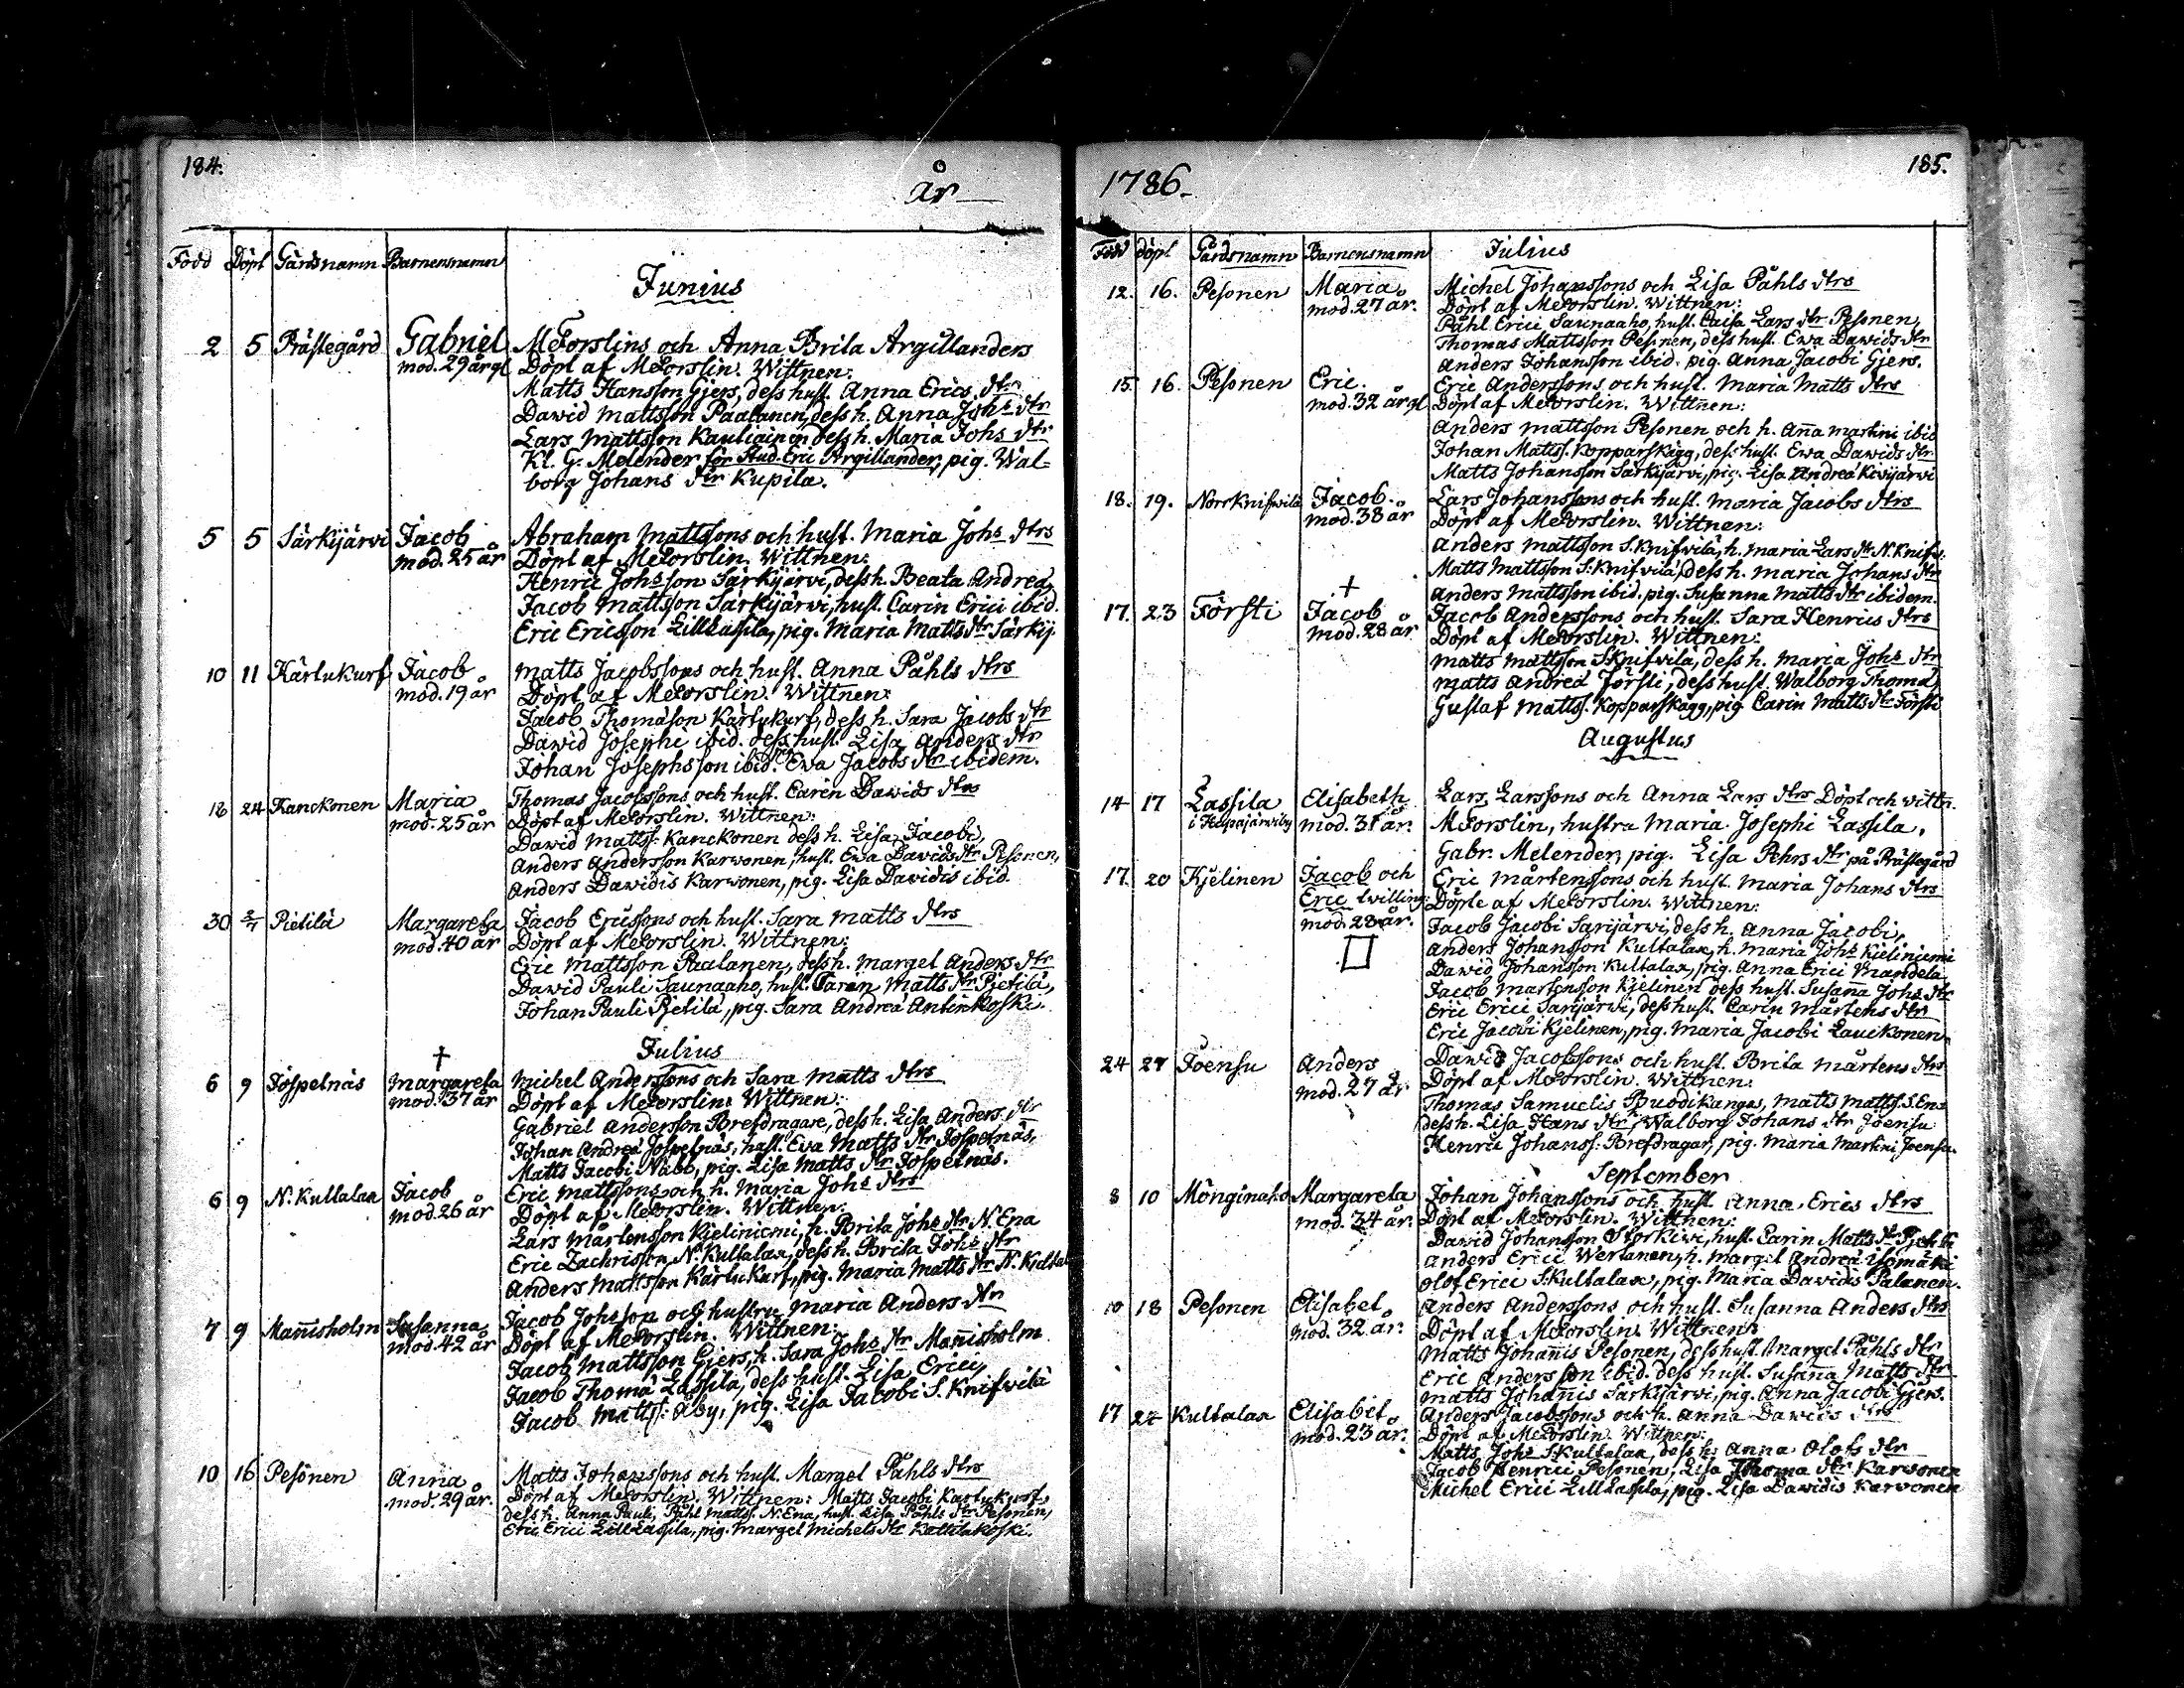 184.
År
Född Döpt Gårdsnamn Barnensnamn
Junius
2 5 Prästegård Gabriel MForslins och Anna Brita Argillanders
mod. 29 år gl Döpt af MForslin. Wittnen:
Matts Hansson Gjers, dess hust. Anna Erics dtr
Dawid Mattsson Paalanen, dess h. Anna Johs dtr
Lars Mattsson Kauliainen dess h. Maria Johs dtr
Kl. G. Melender för Stud. Eric Argillander, pig. Wal=
borg Johans dtr Kupila.
5 5 Särkijärvi Jacob Abraham Mattssons och hust. Maria Johs dtrs
mod. 25 år Döpt af MForslin. Wittnen:
Henric Johsson Särkijärvi, dess h. Beata Andreæ,
Jacob Mattsson Särkijärvi, hust. Carin Erici ibid.
Eric Ericsson LillLassila, pig. Maria Matts dtr Särkij.
10 11 Kärtukurf Jacob Matts Jacobssons och hust. Anna Påhls dtrs
mod. 19 år Döpt af MForslin. Wittnen:
Jacob Thomasson Kärtukurf, dess h. Sara Jacobs dtr
Dawid Josephi ibid. dess hust. Lisa Anders dtr
Johan Josephsson ibid. pig. Ewa Jacobs dtr ibidem.
18 24 Kanckonen Maria Thomas Jacobssons och hust. Carin Dawids dtrs
mod. 25 år Döpt af MForslin. Wittnen:
Dawid Matts. Kanckonen dess h. Lisa Jacobi,
Anders Andersson Karwonen, hust. Ewa Dawids dtr Pesonen,
Anders Dawidis Karwonen, pig. Lisa Davidis ibid.
30 2/7 Pietilä Margareta Jacob Ericssons och hust. Sara Matts dtrs
mod. 40 år Döpt af MForslin. Wittnen:
Eric Mattsson Paalanen, dess h. Marget Anders dtr
Dawid Pauli Saunaaho, hust. Caren Matts dtr Pietilä,
Johan Pauli Pietilä, pig. Sara Andreæ Antinkoski.
Julius
6 9 Jospelnäs Margareta Michel Anderssons och Sara Matts dtrs
mod. 37 år Döpt af MForslin. Wittnen:
Gabriel Andersson Brefdragare, dess h. Lisa Anders dtr
Johan Andreæ Jospelnäs, hust. Eva Matts dtr Jospelnäs,
Matts Jacobi Nabb, pig. Lisa Matts dtr Jospelnäs.
6 9 N. Kultalax Jacob Eric Mattssons och h. Maria Johs dtrs
mod. 26 år Döpt af MForslin. Wittnen:
Lars Mårtensson Kjeliniemi, h. Brita Johs dtr N. Ena
Eric Zachrisson N. Kultalax, dess h. Brita Johs dtr
Anders Mattsson Kärtukurf, pig. Maria Matts dtr N. Kultal
7 9 Mannisholm Susanna Jacob Johsson och hustru Maria Anders dtr
mod. 42 år Döpt af MForslin. Wittnen:
Jacob Mattsson Gjers, h. Sara Johs dtr Mannisholm
Jacob Thomæ Lassila, dess hust. Lisa Erici,
Jacob Matts: Åby, pig. Lisa Jacobi S. Knifwilä
10 16 Pesonen Anna Matts Johanssons och hust. Marget Påhls dtrs
mod. 29 år. Döpt af MForslin. Wittnen: Matts Jacobi Kärtukurf,
dess h. Anna Pauli, Påhl Matts. N. Ena, hust. Lisa Påhls dtr Pesonen,
Eric Erici LillLassila, pig. Marget Michels dtr Kattilakoski.
1786.
185.
Född döpt Gårdsnamn Barnensnamn Julius
12. 16. Pesonen Maria Michel Johanssons och Lisa Påhls dtrs
mod. 27 år. Döpt af MForslin. Wittnen:
Påhl Erici Saunaaho, hust. Caisa Lars dtr Pesonen,
Thomas Mattsson Pesonen, dess hust. Ewa Dawids dtr
Anders Johansson ibid. pig. Anna Jacobi Gjers.
15. 16. Pesonen Eric. Eric Anderssons och hust. Maria Matts dtrs
mod. 32 år gl Döpt af MForslin. Wittnen:
Anders Mattsson Pesonen och h. Anna Martini ibid
Johan Matts. Kopparskägg, dess hust. Ewa Dawids dtr
Matts Johansson Särkijärvi, pig. Lisa Andreæ Kivijärvi
18. 19. Norrknifwilä Jacob. Lars Johanssons och hust. Maria Jacobs dtrs
mod. 38 år Döpt af MForslin. Wittnen:
Anders Mattsson S. Knifwilä, h. Maria Lars dtr N. Knifw.
Matts Mattsson S. Knifwilä, dess h. Maria Johans dtr
Anders Mattsson ibid. pig. Susanna Matts dtr ibidem.
17. 23 Försti Jacob Jacob Anderssons och hust. Sara Henrics dtrs
mod. 28 år Döpt af MForslin. Wittnen:
Matts Mattsson S Knifwilä, dess h. Maria Johs dtr
Matts Andreæ Försti, dess hust. Walborg Thomæ,
Gustaf Matts. Kopparskägg, pig Carin Matts dtr Försti
Augustus
14 17 Lassila Elisabeth Lars Larssons och Anna Lars dtrs Döpt och wittn.
i Kopajärwiby mod. 31 år. MForslin, hustru Maria Josephi Lassila,
Gabr. Melender, pig. Lisa Pehrs dtr på Prästegård
17. 20 Kjelinen Jacob och Eric Mårtenssons och hust. Maria Johans dtrs
Eric twilling. Döpte af MForslin. Wittnen:
mod. 28 år. Jacob Jacobi Sarijärvi, dess h. Anna Jacobi,
Anders Johansson Kultalax, h. Maria Johs Kieliniemi
Dawid Johansson Kultalax, pig. Anna Erici Mandela
Jacob Martensson Kjelinen dess hust. Susanna Johs dtr
Eric Erici Sarijärvi, dess hust. Carin Mårtens dtr
Eric Jacobi Kjelinen, pig. Maria Jacobi Lauckonen.
24 27 Joensu Anders Dawid Jacobssons och hust. Brita Mårtens dtrs
mod. 27 år Döpt af MForslin. Wittnen:
Thomas Samuelis Buodikangas, Matts Matts. S. Ena
dess h. Lisa Hans dtr, Walborg Johans dtr Joensu
Henric Johanss. Brefdragar, pig. Maria Martini Joensu.
September
8 10 Mönginaho Margareta Johan Johanssons och hust. Anna Erics dtrs
mod. 34 år. Döpt af MForslin. Wittnen:
Dawid Johansson Storkiwi, hust. Carin Matts dtr
Anders Erici Werlanen, h. Marget Andreæ Isomäki
Olof Erici S. Kultalax, pig. Maria Davidis Salanen.
10 18 Pesonen Elisabet Anders Anderssons och hust. Susanna Anders dtrs
mod. 32 år. Döpt af MForslin. Wittnen:
Matts Johannis Pesonen, dess hust. Marget Påhls dtr
Eric Andersson ibid. dess hust. Susanna Matts dtr
Matts Johannis Särkijärvi, pig. Anna Jacobi Gjers.
17 24 Kultalax Elisabet Anders Jacobssons och h. Anna Dawids dtrs
mod. 23 år. Döpt af MForslin. Wittnen:
Matts Johs S. Kultalax, dess h: Anna Olofs dtr
Jacob Henrici Pesonen, Lisa Thoma dtr Karwonen
Michel Erici LillLassila, pig. Lisa Dawidis Karvonen